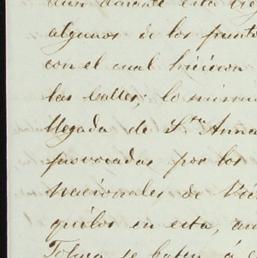 durante esta
algunos de los punto
con el cual hicieron
las calles; lo mismo
llegada de S.ta Anna
provocadas por los
Nacionales de
quilos en esta, au
se baten á